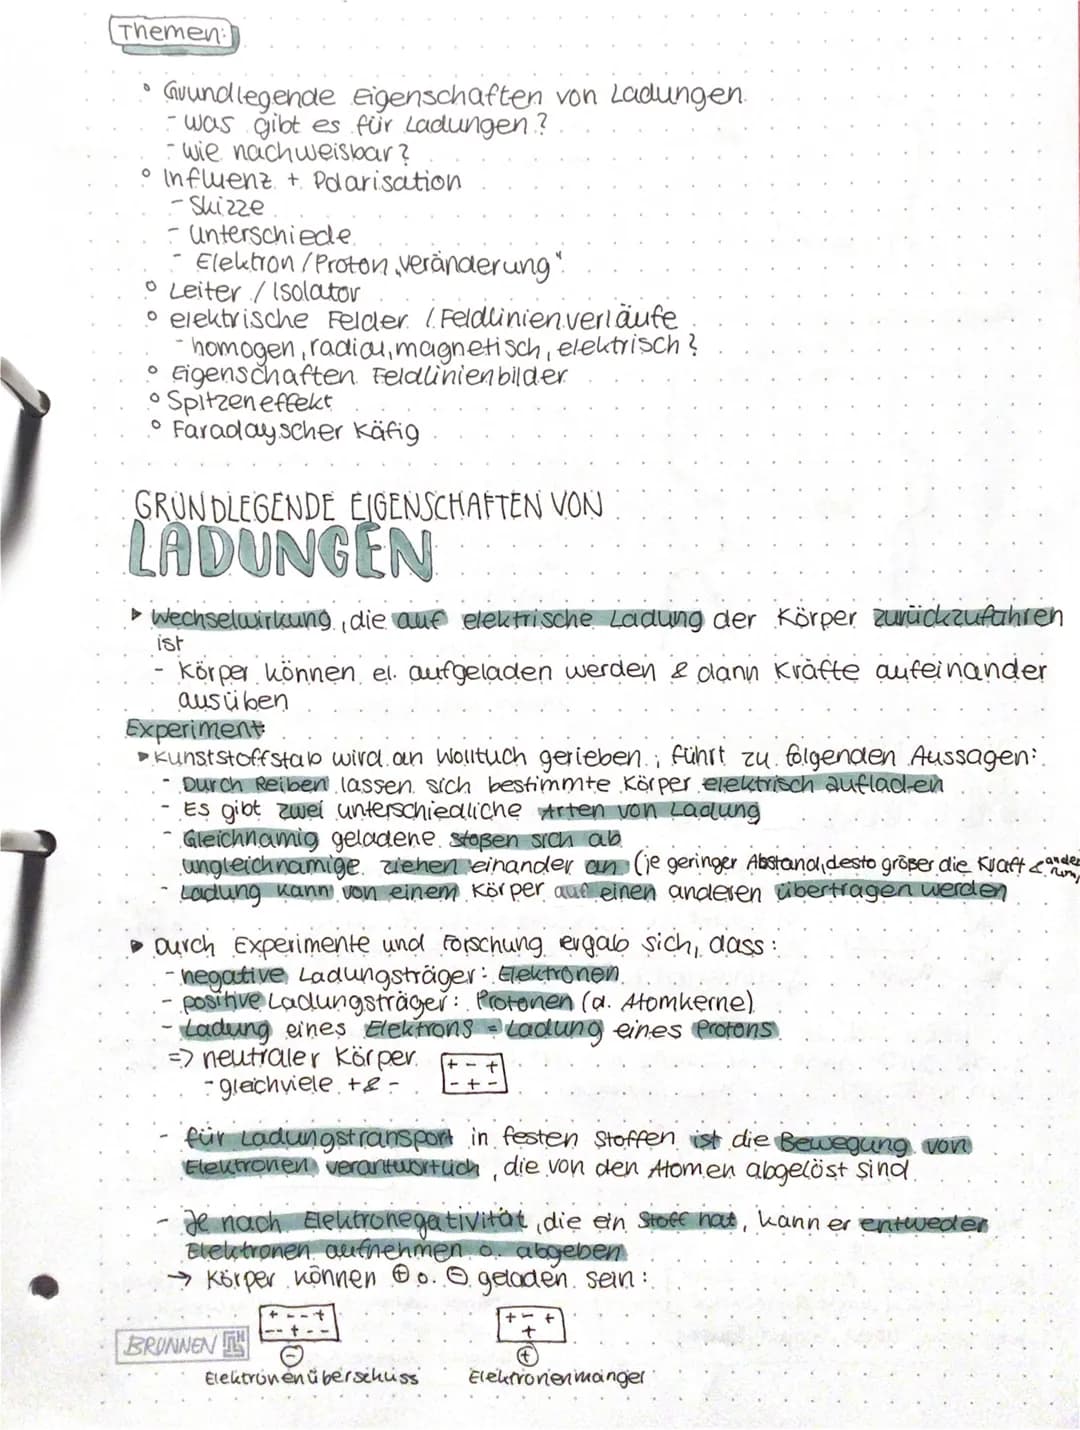 Themen:
° Grundlegende Eigenschaften von Ladungen
- was gibt es für Ladungen?
- wie nachweisbar?
° Influenz + Polarisation
- Skizze
- Unterschiede
- Elektron / Proton „veränderung"
° Leiter / Isolator
° elektrische Felder / Feldlinienverläufe
- homogen, radial, magnetisch, elektrisch?
° Eigenschaften Feldlinienbilder
° Spitzeneffekt
° Faradayscher Käfig
GRUNDLEGENDE EIGENSCHAFTEN VON
LADUNGEN
▸ Wechselwirkung, die auf elektrische Ladung der Körper zurückzuführen
ist
- Körper können el. aufgeladen werden & dann Kräfte aufeinander
ausüben
Experiment:
▸ Kunststoffstab wird an Wolltuch gerieben; führt zu folgenden Aussagen:
- Durch Reiben lassen sich bestimmte Körper elektrisch aufladen
- Es gibt zwei unterschiedliche Arten von Ladung
- Gleichnamig geladene stoßen sich ab
ungleichnamige ziehen einander an (je geringer Abstand, desto größer die Kraft & anders
rum)
- Ladung kann von einem Körper auf einen anderen übertragen werden
▸ Durch Experimente und Forschung ergab sich, dass:
- negative Ladungsträger: Elektronen
- positive Ladungsträger: Protonen (a. Atomkerne)
- Ladung eines Elektrons = Ladung eines Protons
=> neutraler Körper + - +
- gleichviele + & - - + -
- für Ladungstransport in festen Stoffen ist die Bewegung von
Elektronen verantwortlich, die von den Atomen abgelöst sind
- Je nach Elektronegativität, die ein Stoff hat, kann er entweder
Elektronen aufnehmen o. abgeben
→ Körper können ⊕ o. ⊖ geladen sein:
+ - - + + - +
- - + - - +
BRUNNEN
⊖ ⊕
Elektronenüberschuss Elektronenmangel